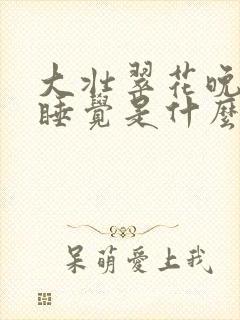 大壮翠花晚
睡覺是什麼
呆萌愛上我